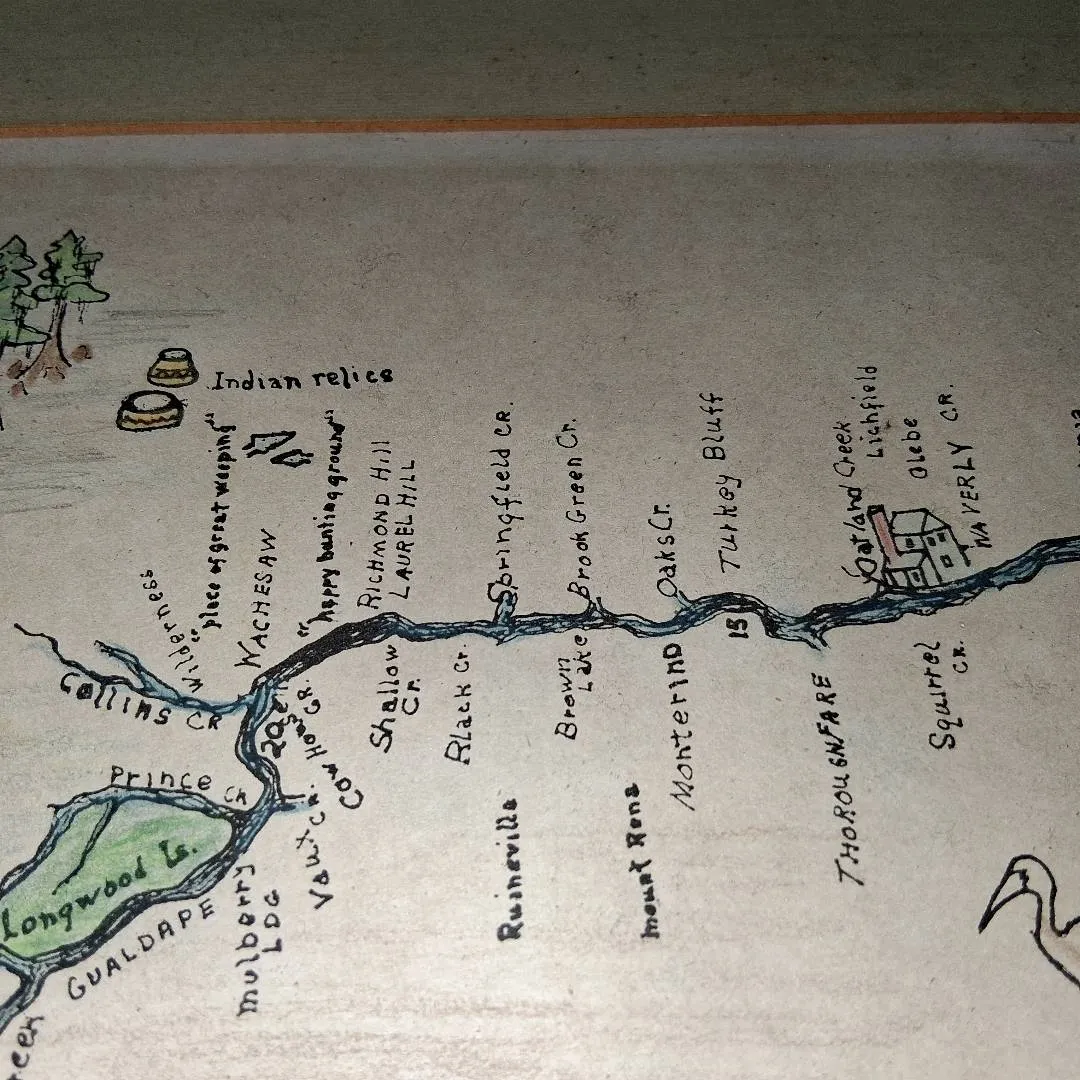 Indian relics
Wilderness
"place of great weeping"
WACHESAW
"happy hunting ground"
RICHMOND Hill
LAUREL HILL
Springfield CR.
Brook Green Cr.
Oaks Cr.
Turkey Bluff
Oatland Creek
Lichfield
Glebe
WAVERLY CR.
Collins CR
Prince CR
Longwood Is.
GUALDAPE
mulberry
LDG
Vaux Cr.
Cow House CR
20
Shallow
Cr.
Black Cr.
Brown
Lake
15
THOROUGHFARE
Squirrel
CR.
Ruineville
mount Rena